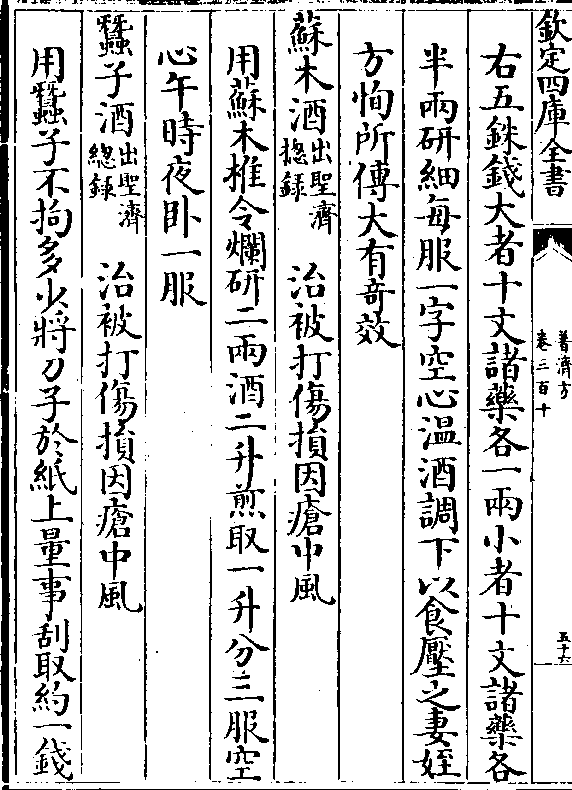 欽定四庫全書
普濟方
卷三百十
五十六
右五銖錢大者十文諸藥各一兩小者十文諸藥各
半兩研細每服一字空心溫酒調下以食壓之妻姪
方恂所傳大有竒效
蘇木酒出聖濟總録 治被打傷損因瘡中風
用蘇木推令爛研二兩酒二升煎取一升分三服空
心午時夜卧一服
蠶子酒出聖濟總録 治被打傷損因瘡中風
用蠶子不拘多少將刀子於紙上量事刮取約一錢